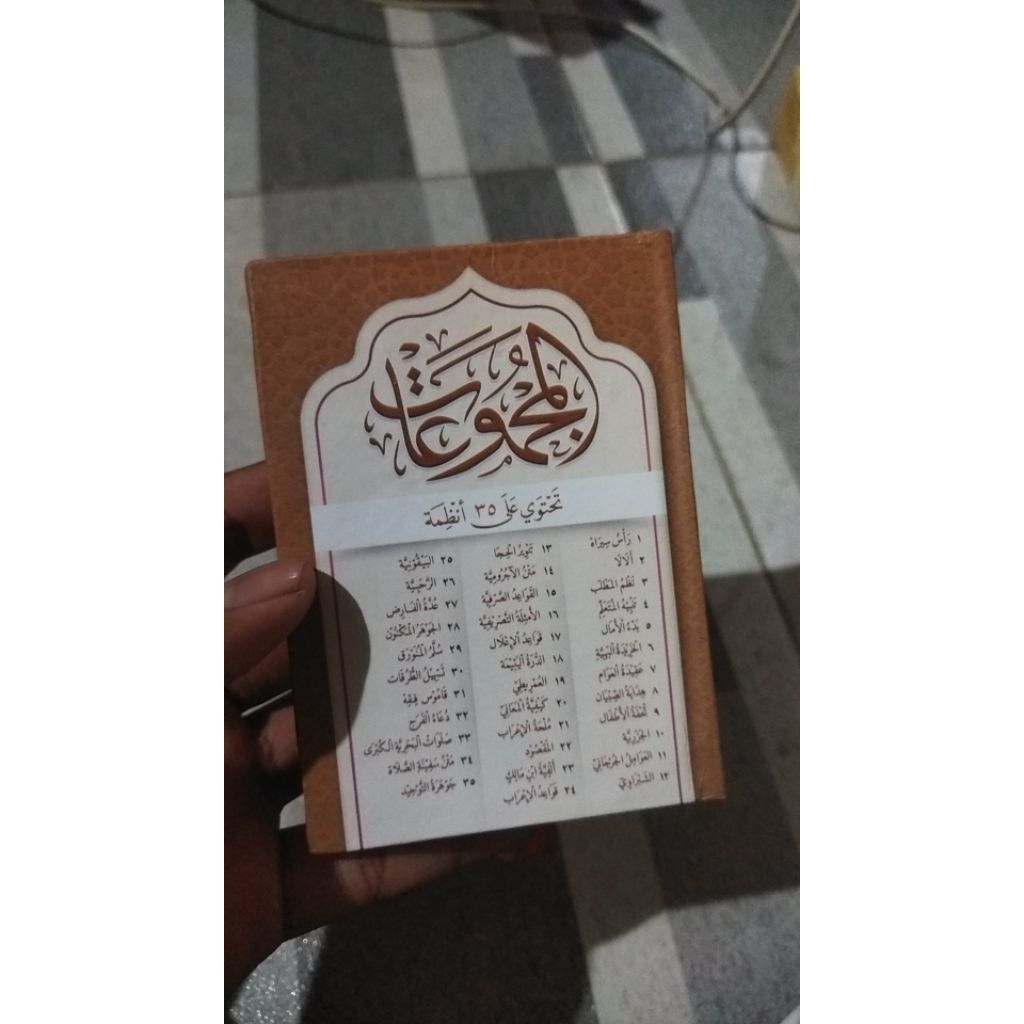 المجموعات
تَحْتَوِي عَلَى ٣٥ أَنْظِمَة
١ رَأْسُ سِيرَاهْ
٢ أَلَالَا
٣ نَظْمُ الْمَطْلَب
٤ تَنْبِيْهُ الْمُتَعَلِّم
٥ بَدْءُ الْأَمَال
٦ الخَرِيْدَةُ الْبَهِيَّة
٧ عَقِيْدَةُ الْعَوَام
٨ هِدَايَةُ الصِّبْيَان
٩ تُحْفَةُ الْأَطْفَال
١٠ الجَزَرِيَّة
١١ العَوَامِلُ الْجُرْجَانِي
١٢ الشَّبْرَاوِيْ
١٣ تَنْوِيْرُ الْحِجَا
١٤ مَتْنُ الْآجُرُوْمِيَّة
١٥ القَوَاعِدُ الصَّرْفِيَّة
١٦ الأَمْثِلَةُ التَّصْرِيْفِيَّة
١٧ قَوَاعِدُ الْإِعْلَال
١٨ الدُّرَّةُ الْيَتِيْمَة
١٩ العِمْرِيْطِيْ
٢٠ كَيْفِيَّةُ الْمَعَانِيْ
٢١ مُلْحَةُ الْإِعْرَاب
٢٢ المَقْصُوْد
٢٣ أَلْفِيَّةُ ابْنِ مَالِكٍ
٢٤ قَوَاعِدُ الْإِعْرَاب
٢٥ البَيْقُوْنِيَّة
٢٦ الرَّحَبِيَّة
٢٧ عُدَّةُ الْفَارِض
٢٨ الجَوْهَرُ الْمَكْنُوْن
٢٩ سُلَّمُ الْمُنَوْرَق
٣٠ تَسْهِيْلُ الطُّرُقَات
٣١ قَامُوْس فِقِه
٣٢ دُعَاءُ الْفَرَج
٣٣ صَلَوَاتُ الْبَحْرِيَّةِ الْكُبْرَى
٣٤ مَتْنُ سَفِيْنَةِ الصَّلَاة
٣٥ جَوْهَرَةُ التَّوْحِيْد